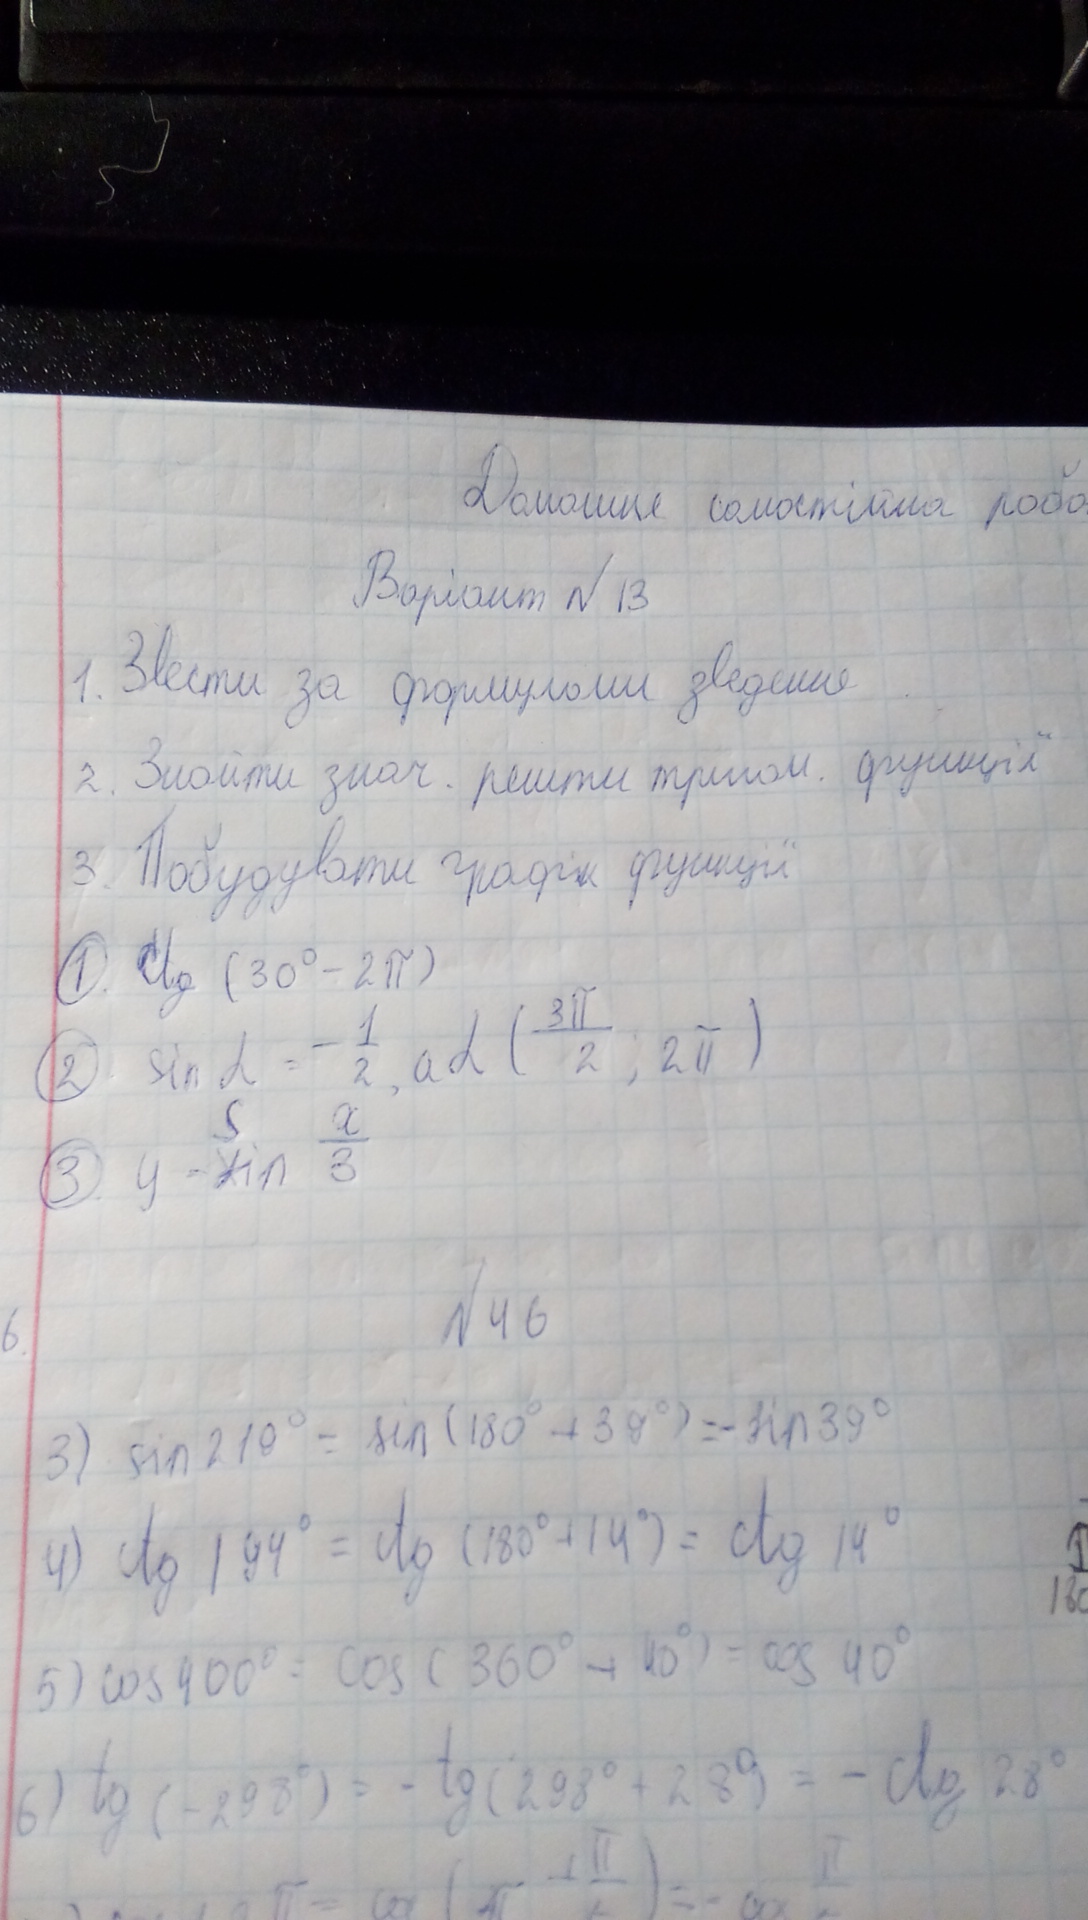 Домашня самостійна робо
Варіант №13
1. Звести за формулами зведення.
2. Знайти знач. решти тригом. функції
3. Побудувати графік функції
1. ctg (30° - 2π)
2. sin α = - 1/2, α α (3π/2; 2π)
3. y = sin x/3
6.
№46
3) sin 219° = sin(180° + 39°) = - sin 39°
4) ctg 194° = ctg (180° + 14°) = ctg 14°
5) cos 400° = cos (360° + 40°) = cos 40°
6) tg (-298°) = - tg (298° + 28°) = - ctg 28°